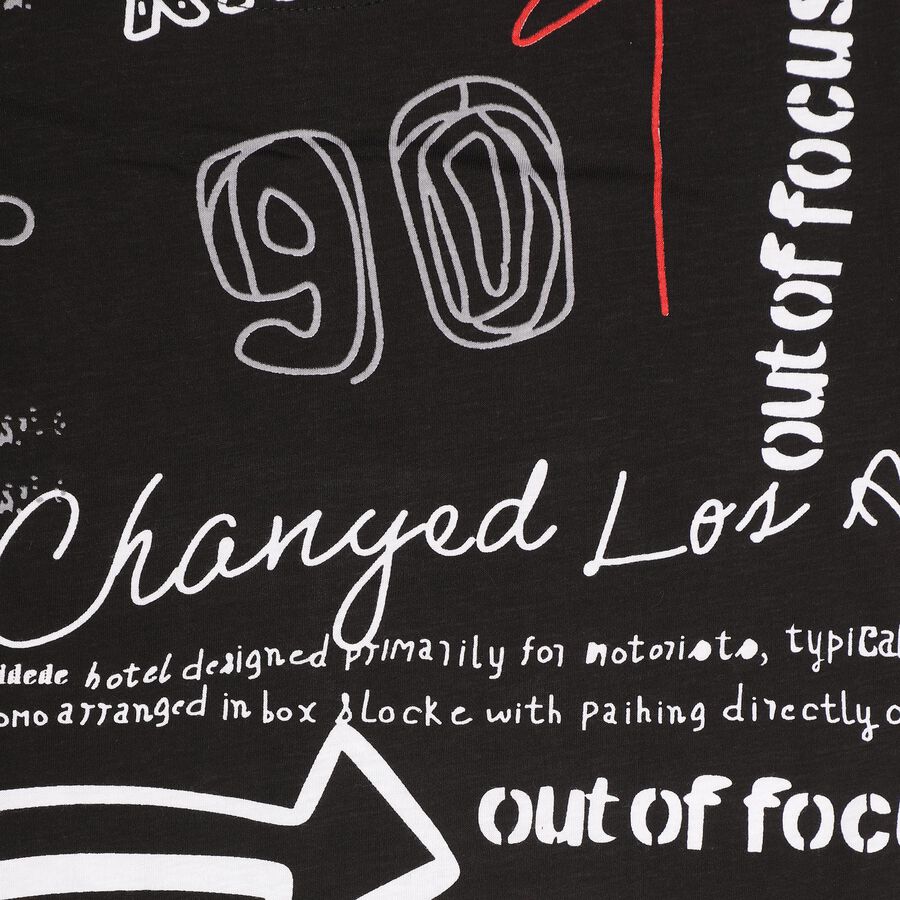 90
out of focus
Changed Los
hotel designed primarily for notorists, typical
omo arranged in box slocke with paihing directly o
out of focu